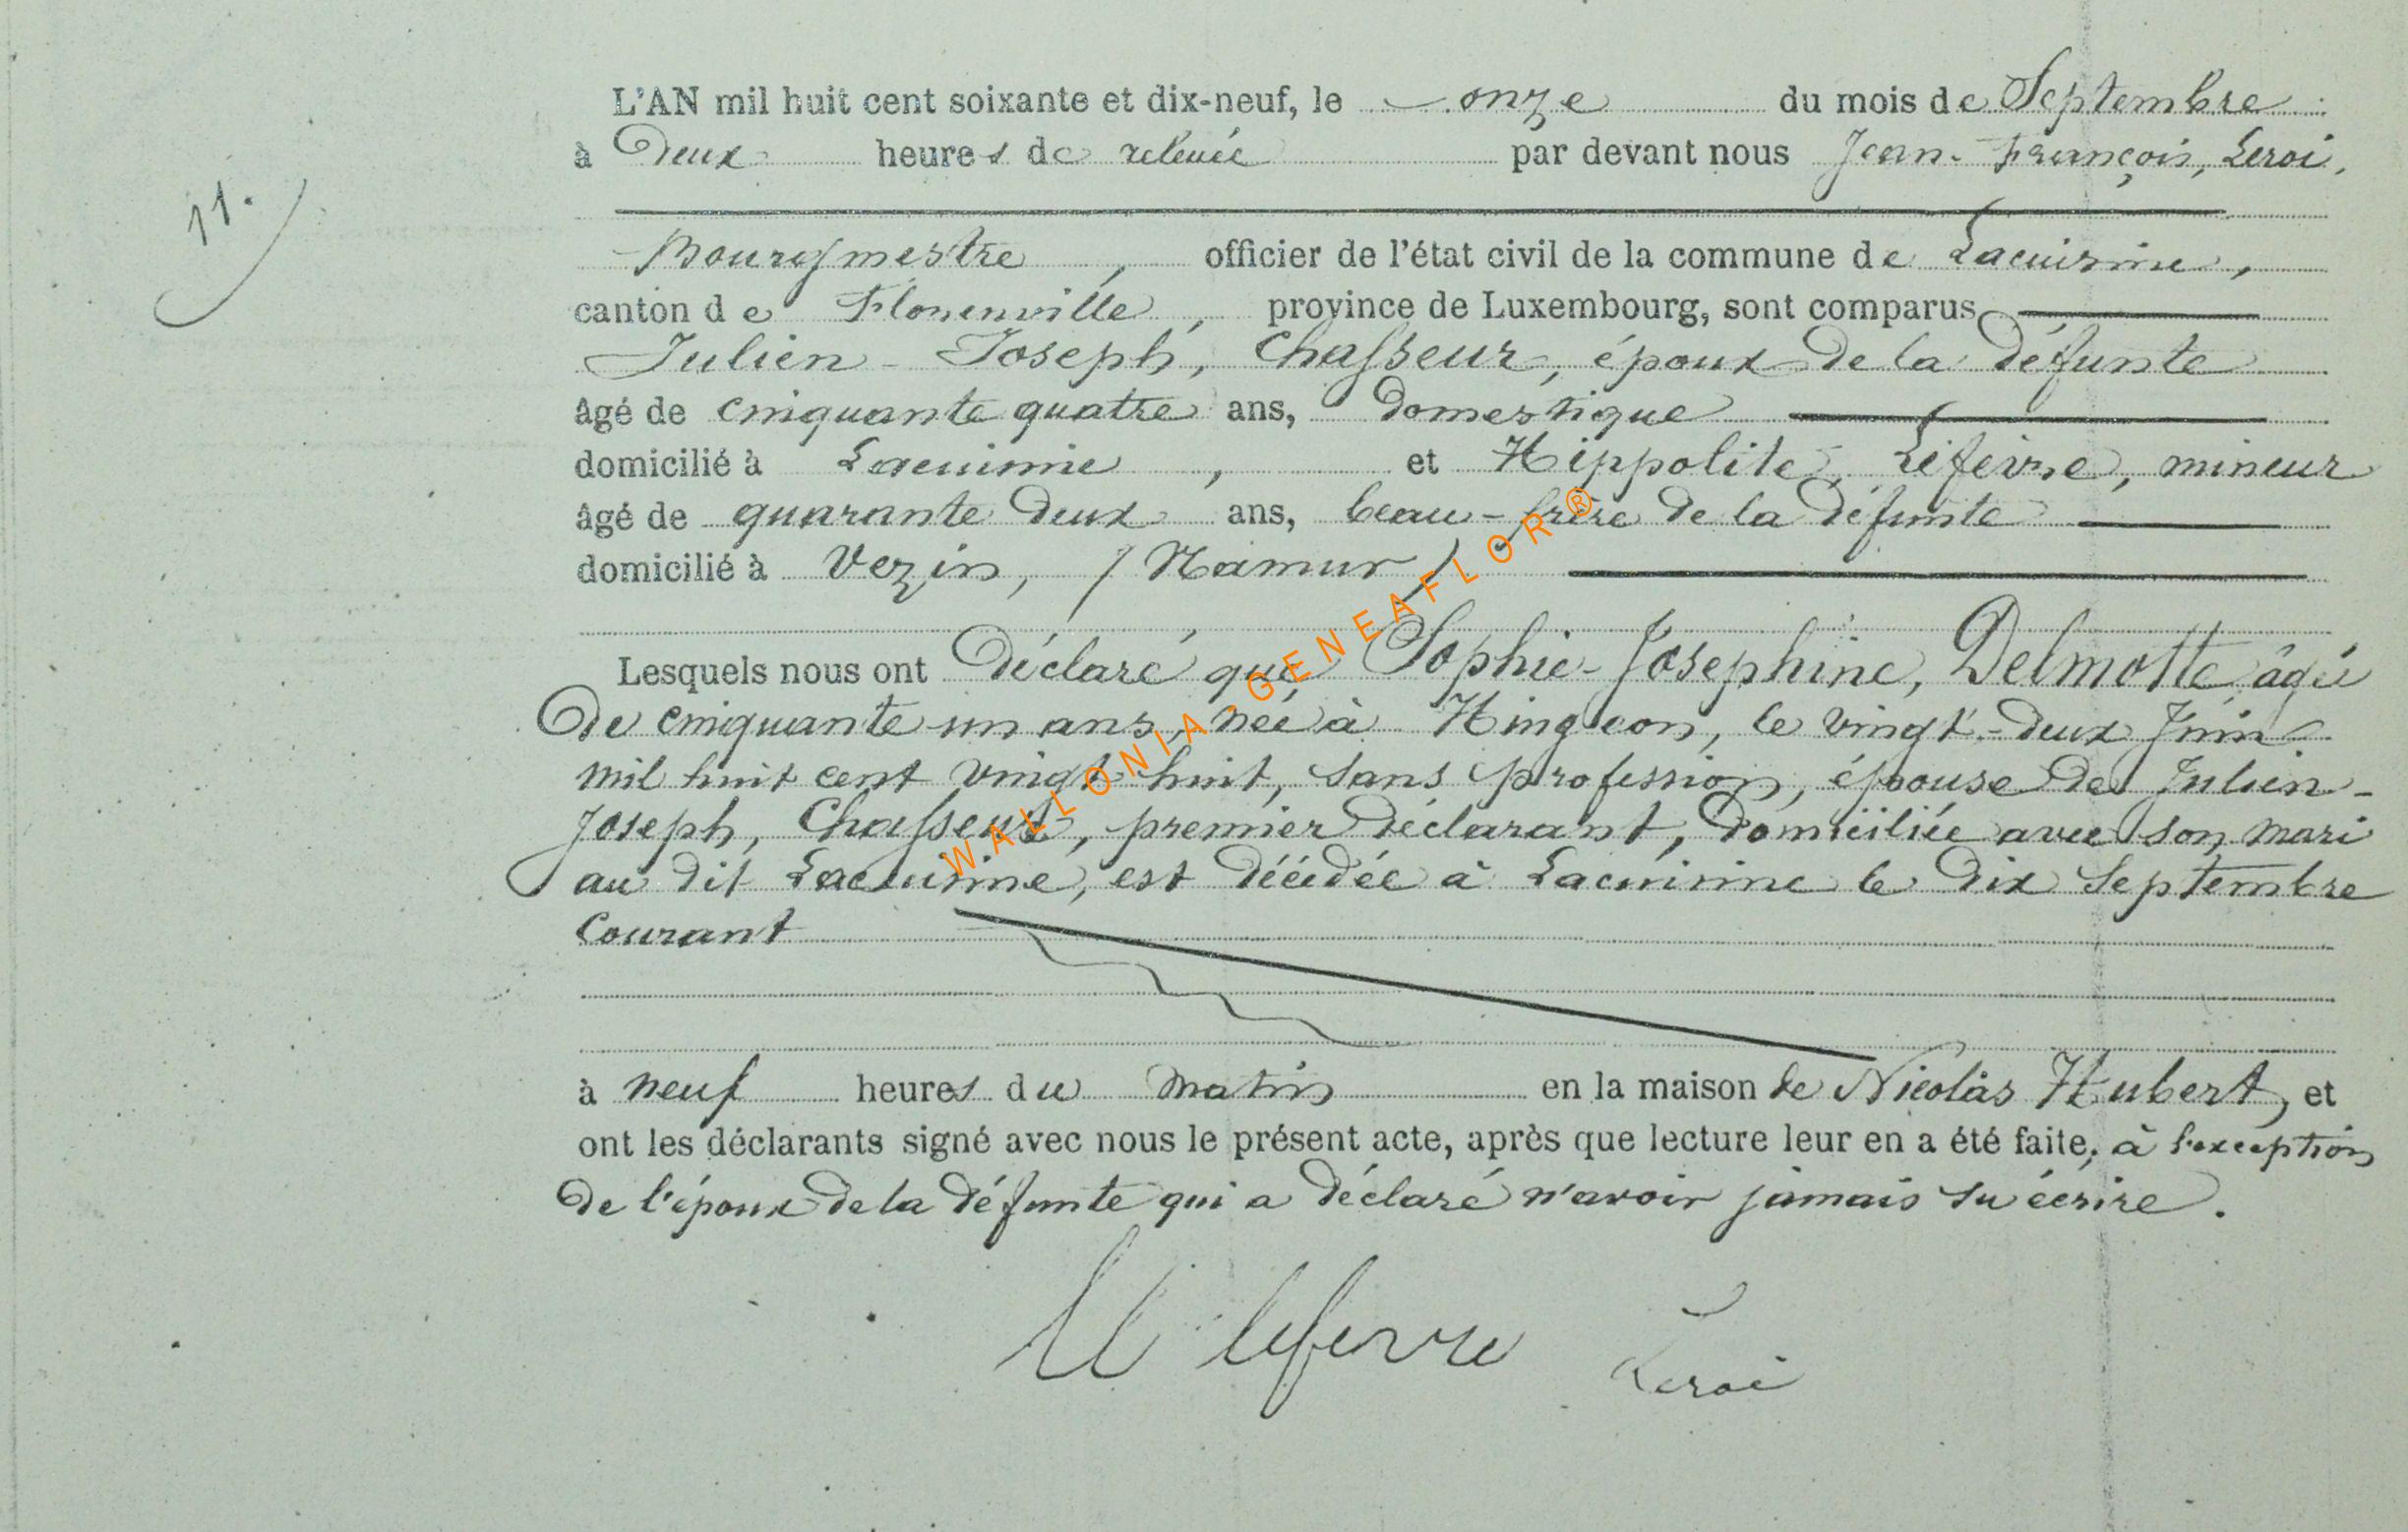 L'AN mil huit cent soixante et dix-neuf, le onze du mois de Septembre
à Deux heures de relevée par devant nous Jean-François, Leroi,
11.
Bourgmestre, officier de l'état civil de la commune de Lacuisine,
canton de Florenville, province de Luxembourg, sont comparus
Julien-Joseph, Chasseur, époux de la défunte
âgé de cinquante quatre ans, Domestique
domicilié à Lacuisine, et Hippolite, Lefèvre, mineur
âgé de quarante deux ans, beau-frère de la défunte
domicilié à Vezin, (Namur)
Lesquels nous ont Déclaré que Sophie-Joséphine, Delmotte âgée
De cinquante un ans, née à Hingeon, le vingt-deux Juin
mil huit cent vingt huit, sans profession, épouse de Julien-
Joseph, Chasseur, premier Déclarant, Domiciliée avec son mari
au dit Lacuisine, est Décédée à Lacuisine le Dix Septembre
Courant
à neuf heures du matin en la maison de Nicolas Hubert, et
ont les déclarants signé avec nous le présent acte, après que lecture leur en a été faite, à l'exception
De l'époux de la Défunte qui a Déclaré n'avoir jamais su écrire.
H lefevre Leroi
WALLONIA-GENEAFLOR®